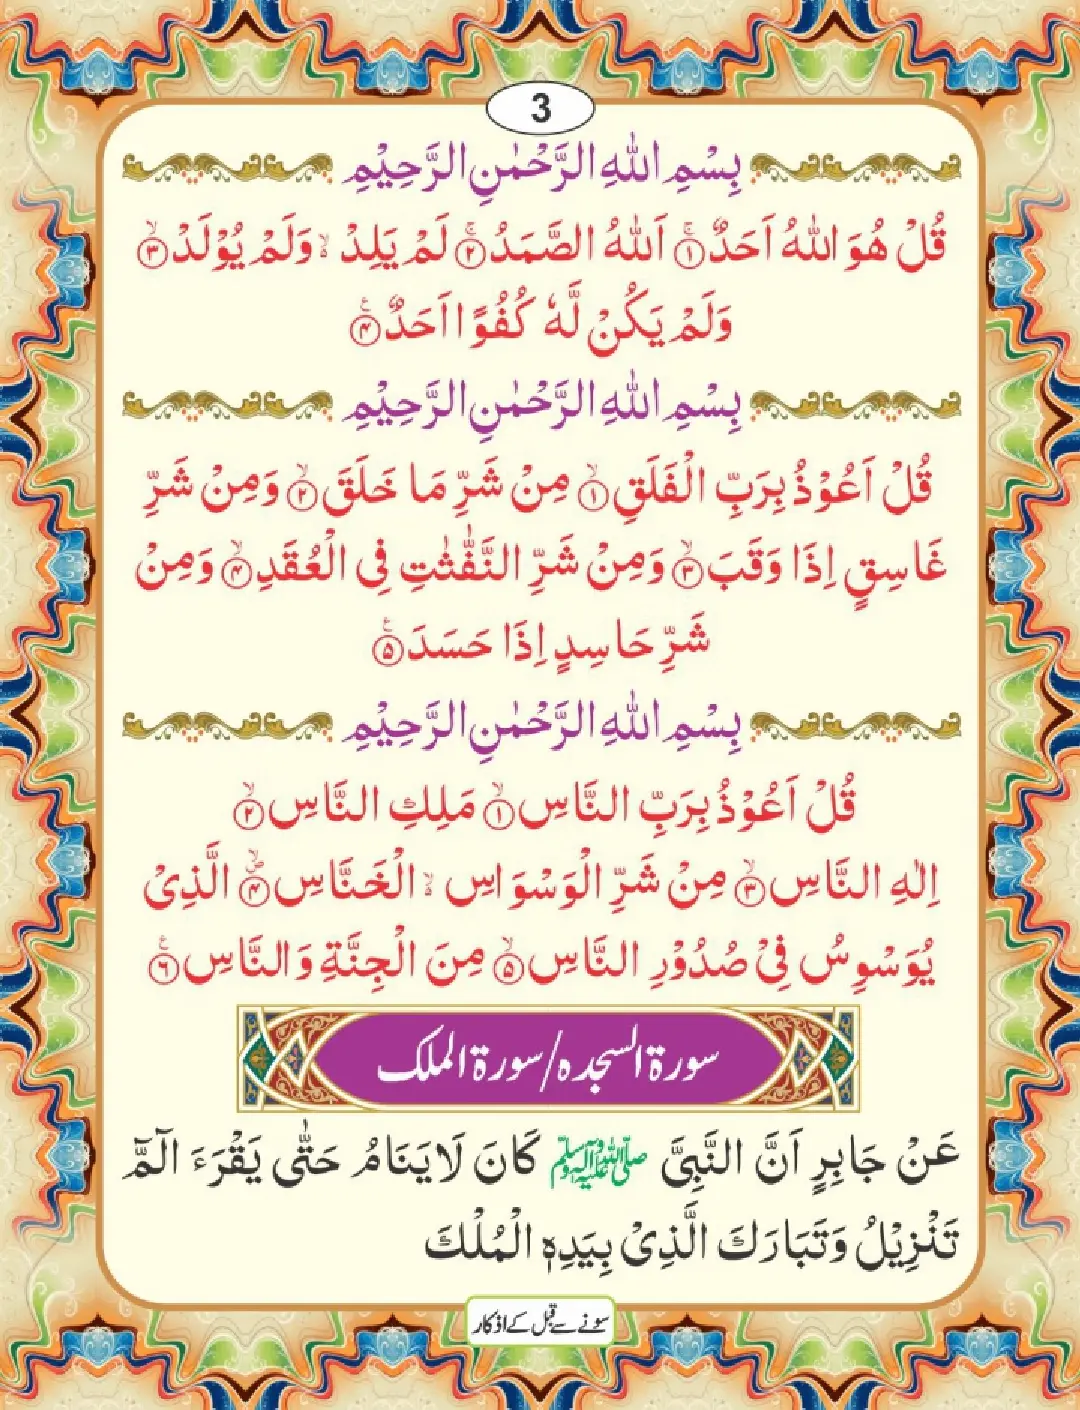 3
بِسْمِ اللهِ الرَّحْمٰنِ الرَّحِيْمِ
قُلْ هُوَ اللهُ اَحَدٌ ۚ﴿۱﴾ اَللهُ الصَّمَدُ ۚ﴿۲﴾ لَمْ يَلِدْ ۙ وَلَمْ يُوْلَدْ ۙ﴿۳﴾
وَلَمْ يَكُنْ لَّهٗ كُفُوًا اَحَدٌ ۧ﴿۴﴾
بِسْمِ اللهِ الرَّحْمٰنِ الرَّحِيْمِ
قُلْ اَعُوْذُ بِرَبِّ الْفَلَقِ ۙ﴿۱﴾ مِنْ شَرِّ مَا خَلَقَ ۙ﴿۲﴾ وَمِنْ شَرِّ
غَاسِقٍ اِذَا وَقَبَ ۙ﴿۳﴾ وَمِنْ شَرِّ النَّفّٰثٰتِ فِى الْعُقَدِ ۙ﴿۴﴾ وَمِنْ
شَرِّ حَاسِدٍ اِذَا حَسَدَ ۧ﴿۵﴾
بِسْمِ اللهِ الرَّحْمٰنِ الرَّحِيْمِ
قُلْ اَعُوْذُ بِرَبِّ النَّاسِ ۙ﴿۱﴾ مَلِكِ النَّاسِ ۙ﴿۲﴾
اِلٰهِ النَّاسِ ۙ﴿۳﴾ مِنْ شَرِّ الْوَسْوَاسِ ۙ الْخَنَّاسِ ۪ۙ﴿۴﴾ الَّذِىْ
يُوَسْوِسُ فِىْ صُدُوْرِ النَّاسِ ۙ﴿۵﴾ مِنَ الْجِنَّةِ وَالنَّاسِ ۧ﴿۶﴾
سورۃ السجدہ/سورۃ الملک
عَنْ جَابِرٍ اَنَّ النَّبِىَّ صلی اللہ علیہ وآلہ وسلم كَانَ لَا يَنَامُ حَتّٰى يَقْرَءَ الٓمّٓ
تَنْزِيْلُ وَتَبَارَكَ الَّذِىْ بِيَدِهِ الْمُلْكَ
سونے سے قبل کے اذکار